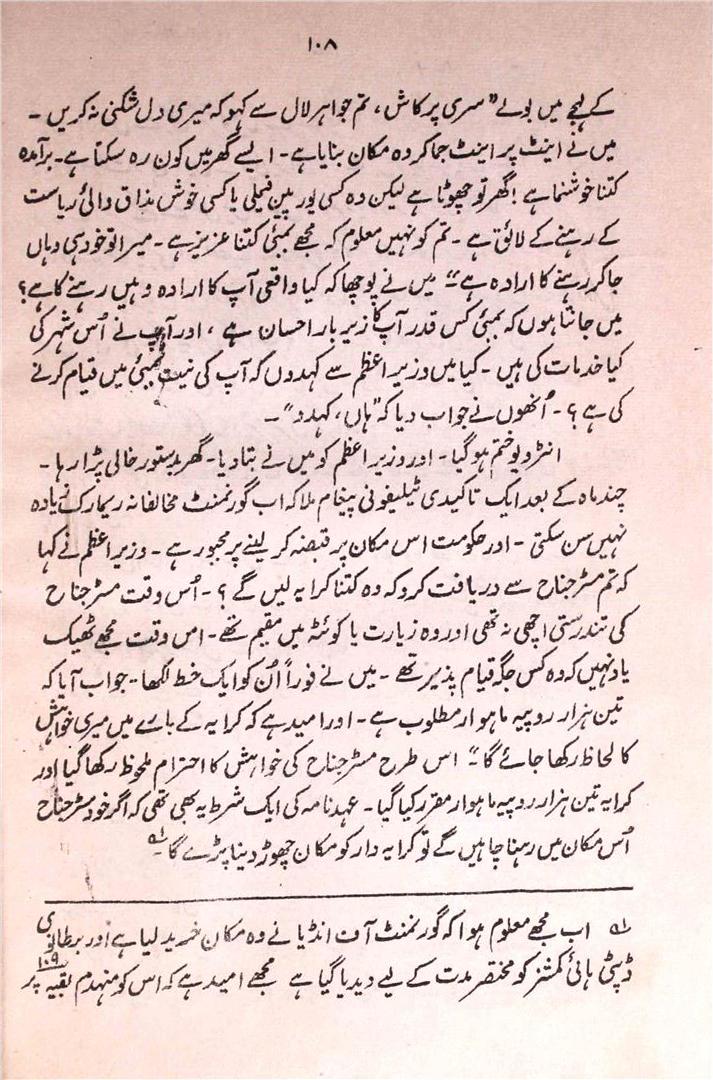 ۱۰۸
کے لہجے میں بولے” سری پرکاش ، تم جواہر لال سے کہو کہ میری دل شکنی نہ کریں ۔
میں نے اینٹ پر اینٹ جما کر وہ مکان بنایا ہے ۔ ایسے گھر میں کون رہ سکتا ہے ۔ برآمدہ
کتنا خوشنما ہے ! گھر تو چھوٹا ہے لیکن وہ کسی یورپین فیملی یا کسی خوش مذاق والیٔ ریاست
کے رہنے کے لائق ہے ۔ تم کو نہیں معلوم کہ مجھے بمبئی کتنا عزیز ہے ۔ میرا تو خود ہی وہاں
جا کر رہنے کا ارادہ ہے “ میں نے پوچھا کہ کیا واقعی آپ کا ارادہ وہیں رہنے کا ہے ؟
میں جانتا ہوں کہ بمبئی کس قدر آپ کا زیر بار احسان ہے ، اور آپ نے اُس شہر کی
کیا خدمات کی ہیں ۔ کیا میں وزیر اعظم سے کہدوں کہ آپ کی نیت بمبئی میں قیام کرنے
کی ہے ؟ ۔ اُنھوں نے جواب دیا کہ ”ہاں ، کہدو“ ۔
انٹرویو ختم ہو گیا ۔ اور وزیر اعظم کو میں نے بتا دیا ۔ گھر بدستور خالی پڑا رہا ۔
چند ماہ کے بعد ایک تاکیدی ٹیلیفونی پیغام ملا کہ اب گورنمنٹ مخالفانہ ریمارک زیادہ
نہیں سن سکتی ۔ اور حکومت اس مکان پر قبضہ کر لینے پر مجبور ہے ۔ وزیر اعظم نے کہا
کہ تم مسٹر جناح سے دریافت کرو کہ وہ کتنا کرایہ لیں گے ؟ ۔ اُس وقت مسٹر جناح
کی تندرستی اچھی نہ تھی اور وہ زیارت یا کوئٹہ میں مقیم تھے ۔ اس وقت مجھے ٹھیک
یاد نہیں کہ وہ کس جگہ قیام پذیر تھے ۔ میں نے فوراً اُن کو ایک خط لکھا ۔ جواب آیا کہ
تین ہزار روپیہ ماہوار مطلوب ہے ۔ اور امید ہے کہ کرایہ کے بارے میں میری خواہش
کا لحاظ رکھا جائے گا “ اس طرح مسٹر جناح کی خواہش کا احترام ملحوظ رکھا گیا اور
کرایہ تین ہزار روپیہ ماہوار مقرر کیا گیا ۔ عہد نامہ کی ایک شرط یہ بھی تھی کہ اگر خود مسٹر جناح
اُس مکان میں رہنا چاہیں گے تو کرایہ دار کو مکان چھوڑ دینا پڑے گا ۔ ؎۱
؎۱ اب مجھے معلوم ہوا کہ گورنمنٹ آف انڈیا نے وہ مکان خرید لیا ہے اور برطانوی
ڈپٹی ہائی کمشنر کو مختصر مدت کے لیے دیدیا گیا ہے مجھے امید ہے کہ اس کو منہدم بقیہ ۱۰۹ پر